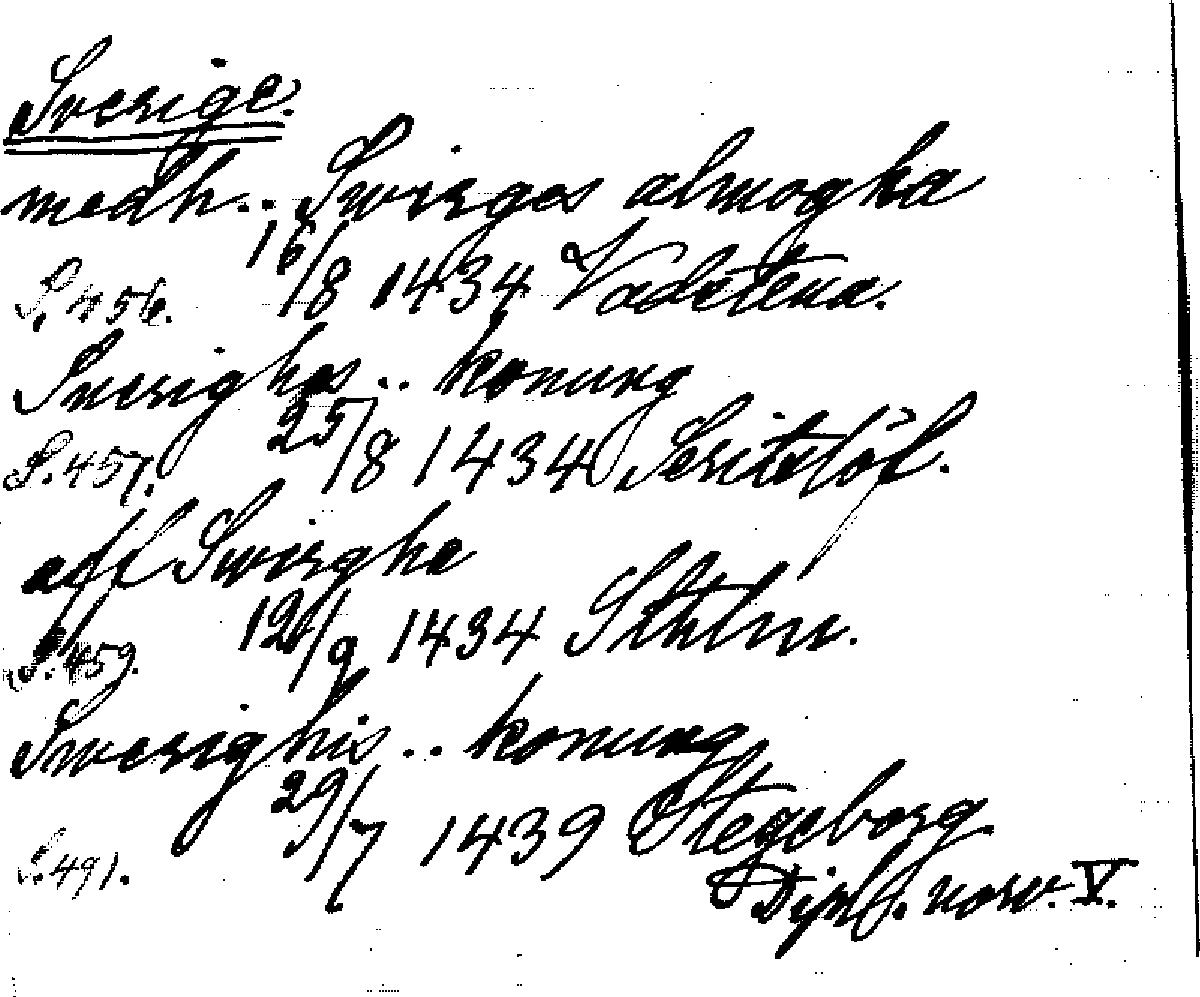 Sverige.
medh.. Swirges almogha
S. 456. 16/8 1434 Vadstena.
Sverighes.. konung
S. 457. 25/8 1434 Skeitslöf.
aff Swirghe
S. 459. 12/9 1434 Sthlm.
Swerighis.. konung
S. 491. 29/7 1439 Stegeborg
Dipl. norv. V.